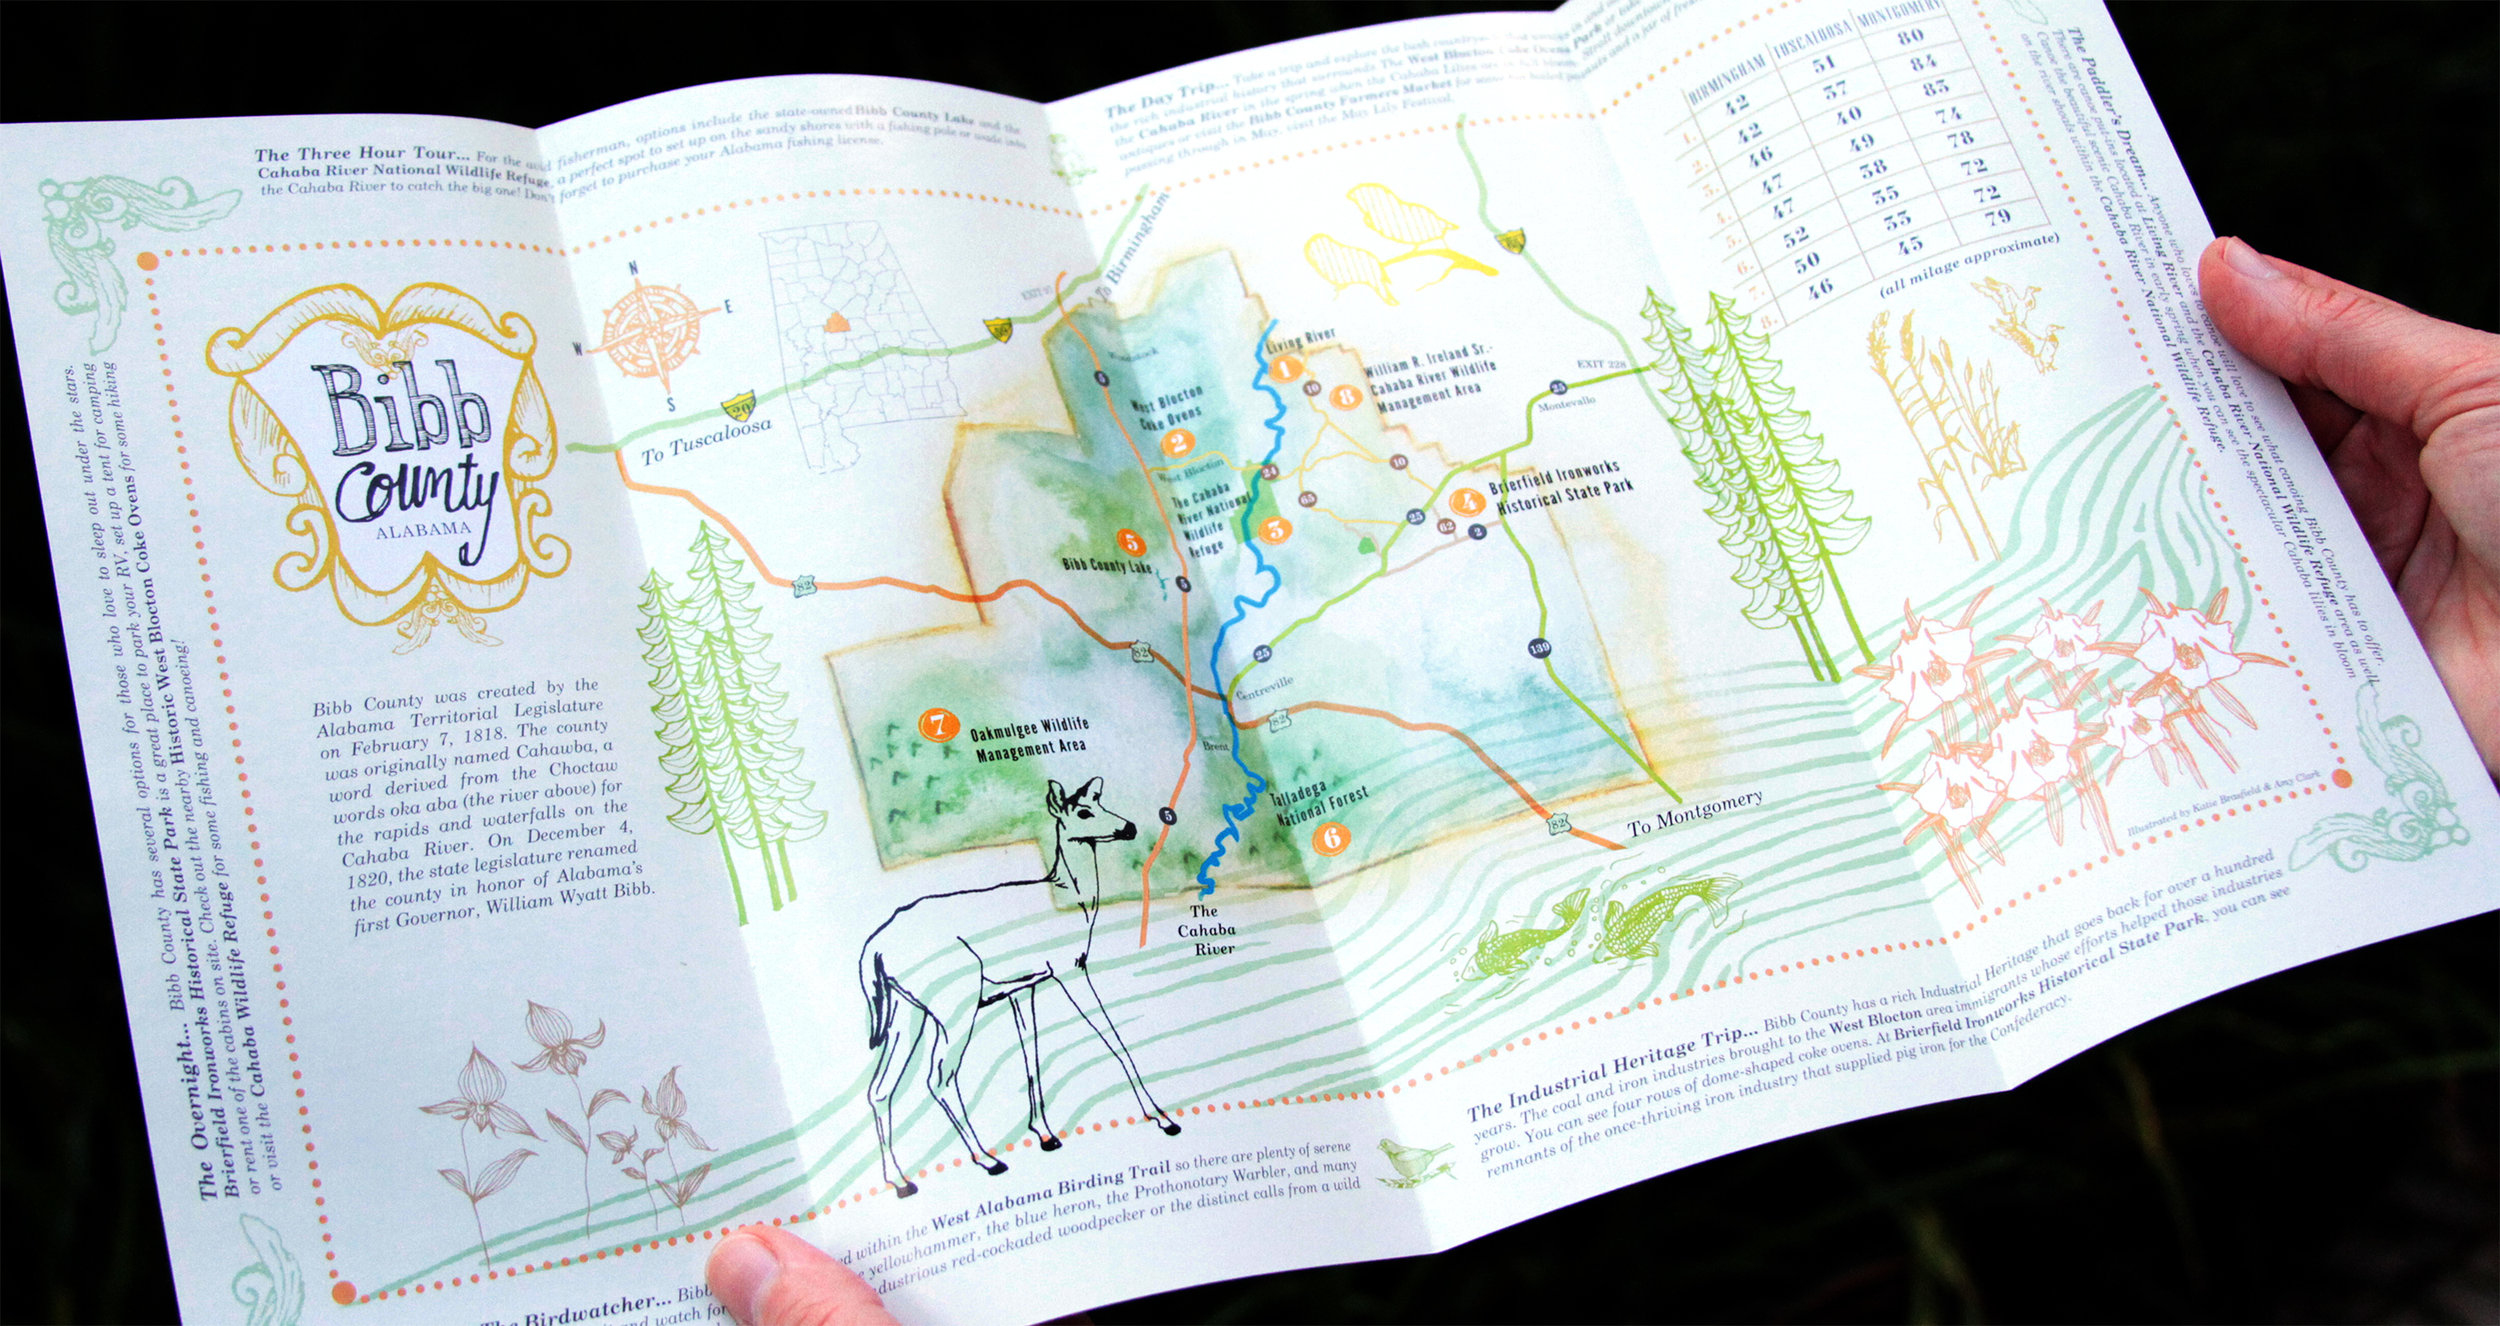 The Three Hour Tour... For the avid fisherman, options include the state-owned Bibb County Lake and the
Cahaba River National Wildlife Refuge, a perfect spot to set up on the sandy shores with a fishing pole or wade into
the Cahaba River to catch the big one! Don't forget to purchase your Alabama fishing license.
The Day Trip... Take a trip and explore the lush
the rich industrial history that surrounds The West Blocton Coke Ovens
the Cahaba River in the spring when the Cahaba Lilies are in full bloom.
antiques or visit the Bibb County Farmers Market for some
passing through in May, visit the May Lily Festival.
BIRMINGHAM TUSCALOOSA MONTGOMERY
1. 42 51 80
2. 42 37 84
3. 46 40 83
4. 47 49 74
5. 47 38 78
6. 52 35 72
7. 50 33 72
8. 46 45 79
(all milage approximate)
The Paddler's Dream... Anyone who loves to canoe will love to see what canoeing Bibb County has to offer.
There are canoe put-ins located at Living River and the Cahaba River National Wildlife Refuge area as well
Canoe the beautiful scenic Cahaba River in early spring when you can see the spectacular Cahaba lilies in bloom
on the river shoals within the Cahaba River National Wildlife Refuge.
The Overnight... Bibb County has several options for those who love to sleep out under the stars.
Brierfield Ironworks Historical State Park is a great place to park your RV, set up a tent for camping
or rent one of the cabins on site. Check out the nearby Historic West Blocton Coke Ovens for some hiking
or visit the Cahaba Wildlife Refuge for some fishing and canoeing!
Bibb
County
ALABAMA
Bibb County was created by the
Alabama Territorial Legislature
on February 7, 1818. The county
was originally named Cahawba, a
word derived from the Choctaw
words oka aba (the river above) for
the rapids and waterfalls on the
Cahaba River. On December 4,
1820, the state legislature renamed
the county in honor of Alabama's
first Governor, William Wyatt Bibb.
N
E
S
W
To Tuscaloosa
20
To Birmingham
EXIT 97
Woodstock
5
West Blocton
Coke Ovens
2
West Blocton
The Cahaba
River National
Wildlife
Refuge
3
Living River
1
10
8
William R. Ireland Sr.-
Cahaba River Wildlife
Management Area
EXIT 228
25
Montevallo
24
10
65
25
62
2
4
Brierfield Ironworks
Historical State Park
5
Bibb County Lake
5
82
82
25
139
Centreville
82
Brent
7
Oakmulgee Wildlife
Management Area
5
Talladega
National Forest
6
82
To Montgomery
The
Cahaba
River
Illustrated by Katie Brasfield & Amy Clark
The Birdwatcher... Bibb
and watch for
within the West Alabama Birding Trail so there are plenty of serene
yellowhammer, the blue heron, the Prothonotary Warbler, and many
industrious red-cockaded woodpecker or the distinct calls from a wild
The Industrial Heritage Trip... Bibb County has a rich Industrial Heritage that goes back for over a hundred
years. The coal and iron industries brought to the West Blocton area immigrants whose efforts helped those industries
grow. You can see four rows of dome-shaped coke ovens. At Brierfield Ironworks Historical State Park, you can see
remnants of the once-thriving iron industry that supplied pig iron for the Confederacy.